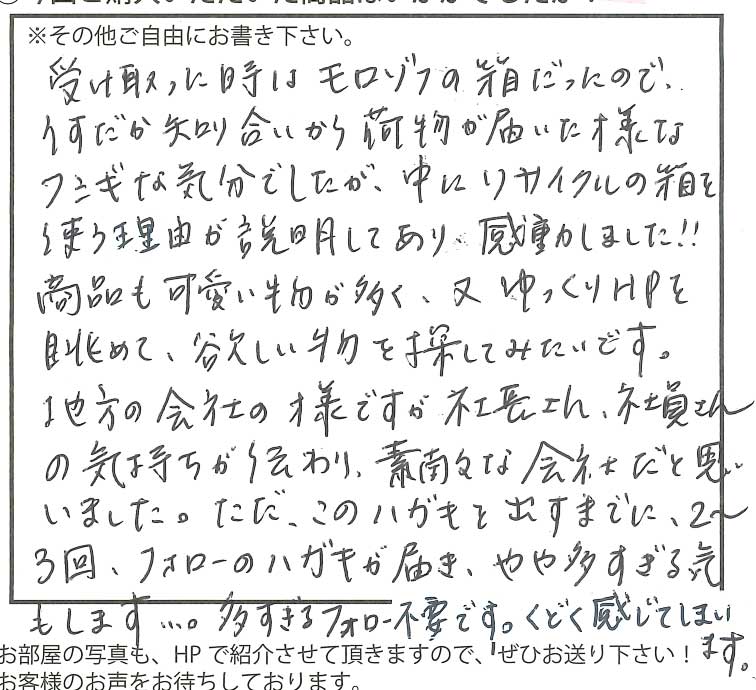 ※その他ご自由にお書き下さい。
受け取った時はモロゾフの箱だったので、
うすだか知り合いから荷物が届いた様な
フシギな気分でしたが、中にリサイクルの箱を
使う理由が説明してあり、感動しました!!
商品も可愛い物が多く、又ゆっくりHPを
眺めて、欲しい物を探してみたいです。
地方の会社の様ですが社長さん、社員さん
の気持ちが伝わり、素敵な会社だと思い
いました。ただ、このハガキを出すまでに、2〜
3回、フォローのハガキが届き、やや多すぎる気
もします…。多すぎるフォロー不要です。くどく感じてしまい
ます。
お部屋の写真も、HPで紹介させて頂きますので、ぜひお送り下さい!
お客様のお声をお待ちしております。